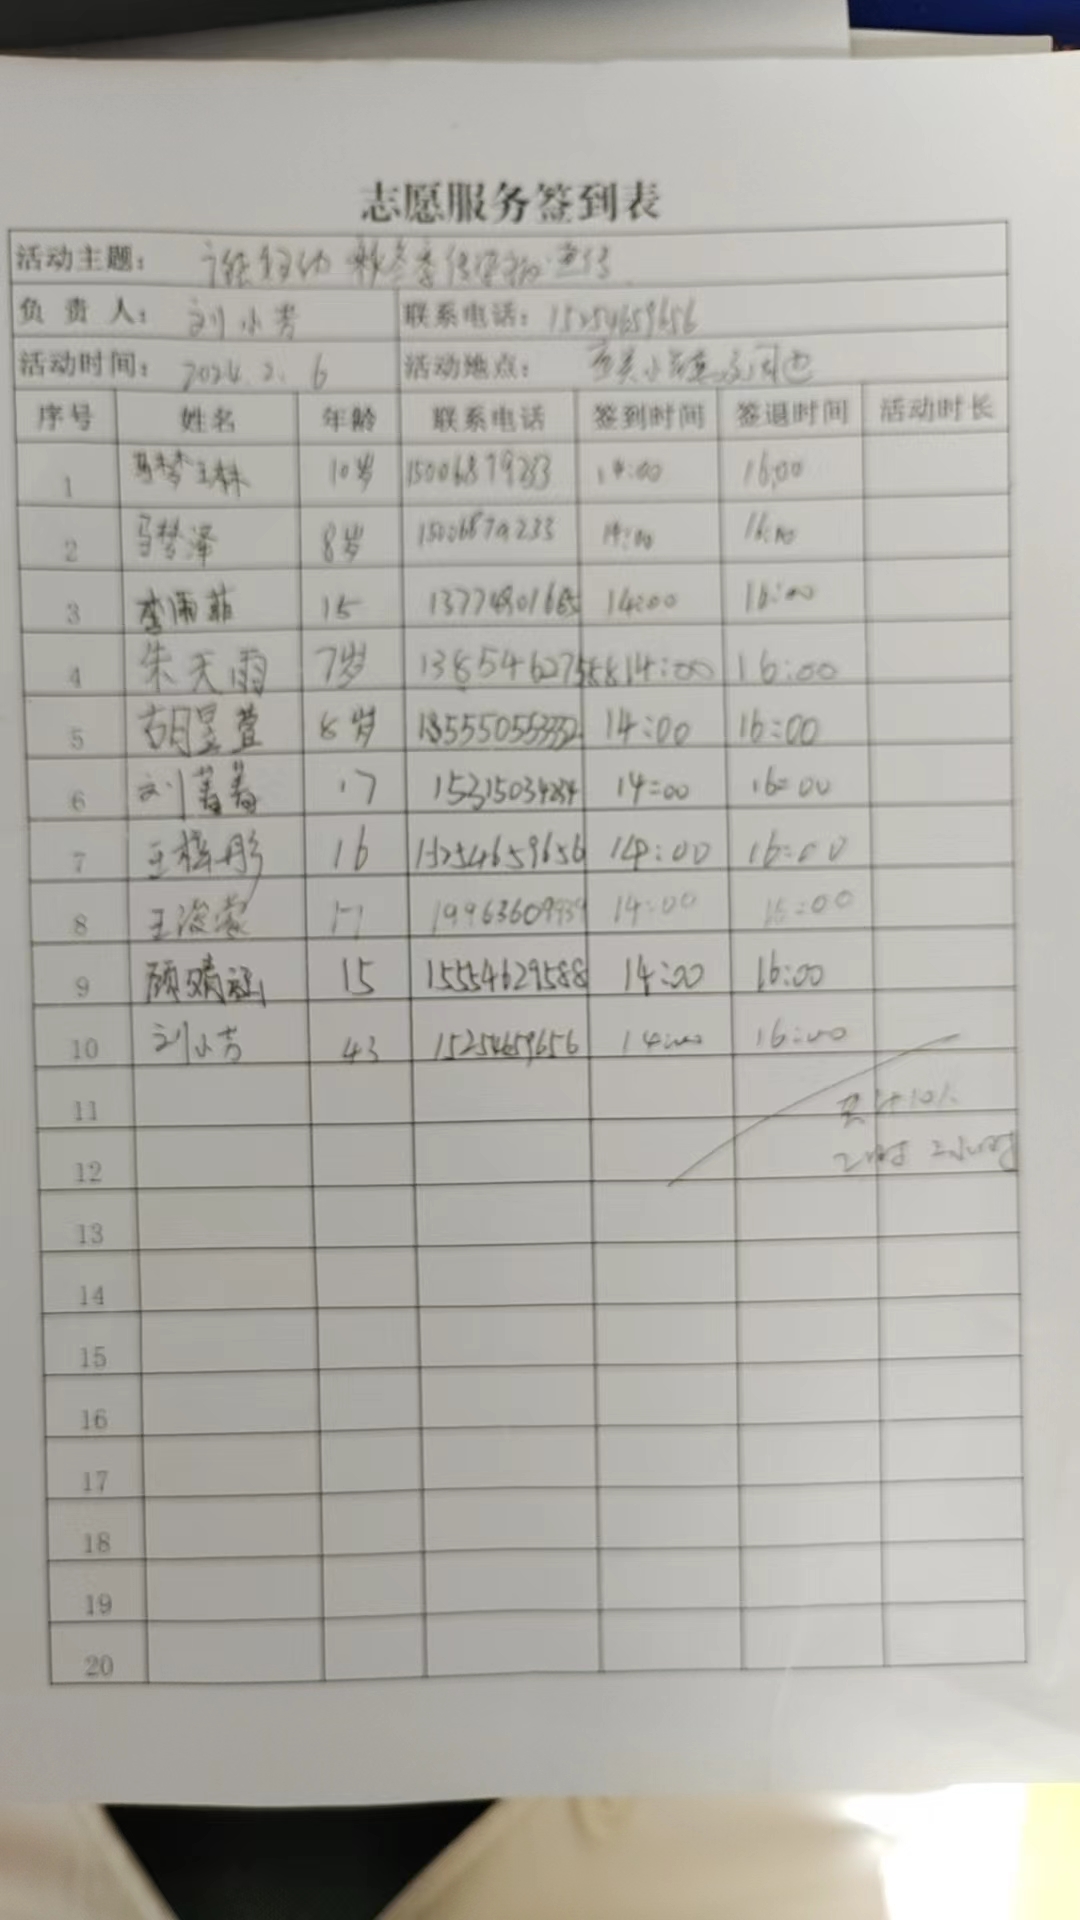 志愿服务签到表
活动主题： 秋冬季传染病宣传
负责人： 刘小芳 联系电话：15254659656
活动时间： 2024.2.6 活动地点：
序号 姓名 年龄 联系电话 签到时间 签退时间 活动时长
1 马梦 10岁 15006879233 14:00 16:00
2 马梦泽 8岁 15006879233 14:00 16:00
3 李雨菲 15 14:00 16:00
4 朱天雨 7岁 14:00 16:00
5 胡昱萱 8岁 14:00 16:00
6 刘菁菁 17 14:00 16:00
7 王梓彤 16 15254659656 14:00 16:00
8 王浚 17 14:00 16:00
9 顾婧涵 15 15554629588 14:00 16:00
10 刘小芳 43 15254659656 14:00 16:00
11 共计10人
12 2小时
13
14
15
16
17
18
19
20